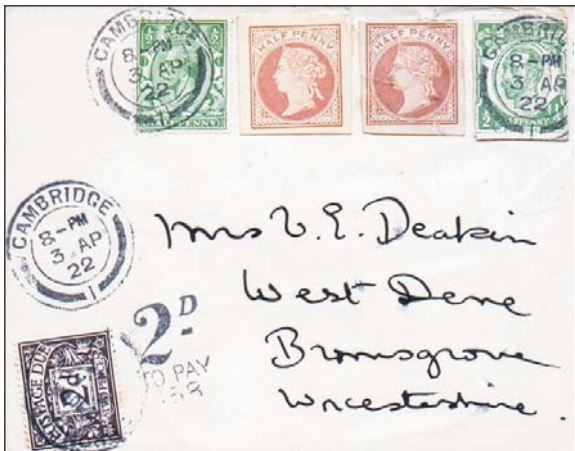 CAMBRIDGE
8-PM
3 AP
22
HALF PENNY
HALF PENNY
HALFPENNY
8-PM
3 AP
22
1
CAMBRIDGE
8-PM
3 AP
22
1
Mrs V. E. Deakin
West Dene
Bromsgrove
Worcestershire.
2D
TO PAY
POSTAGE DUE